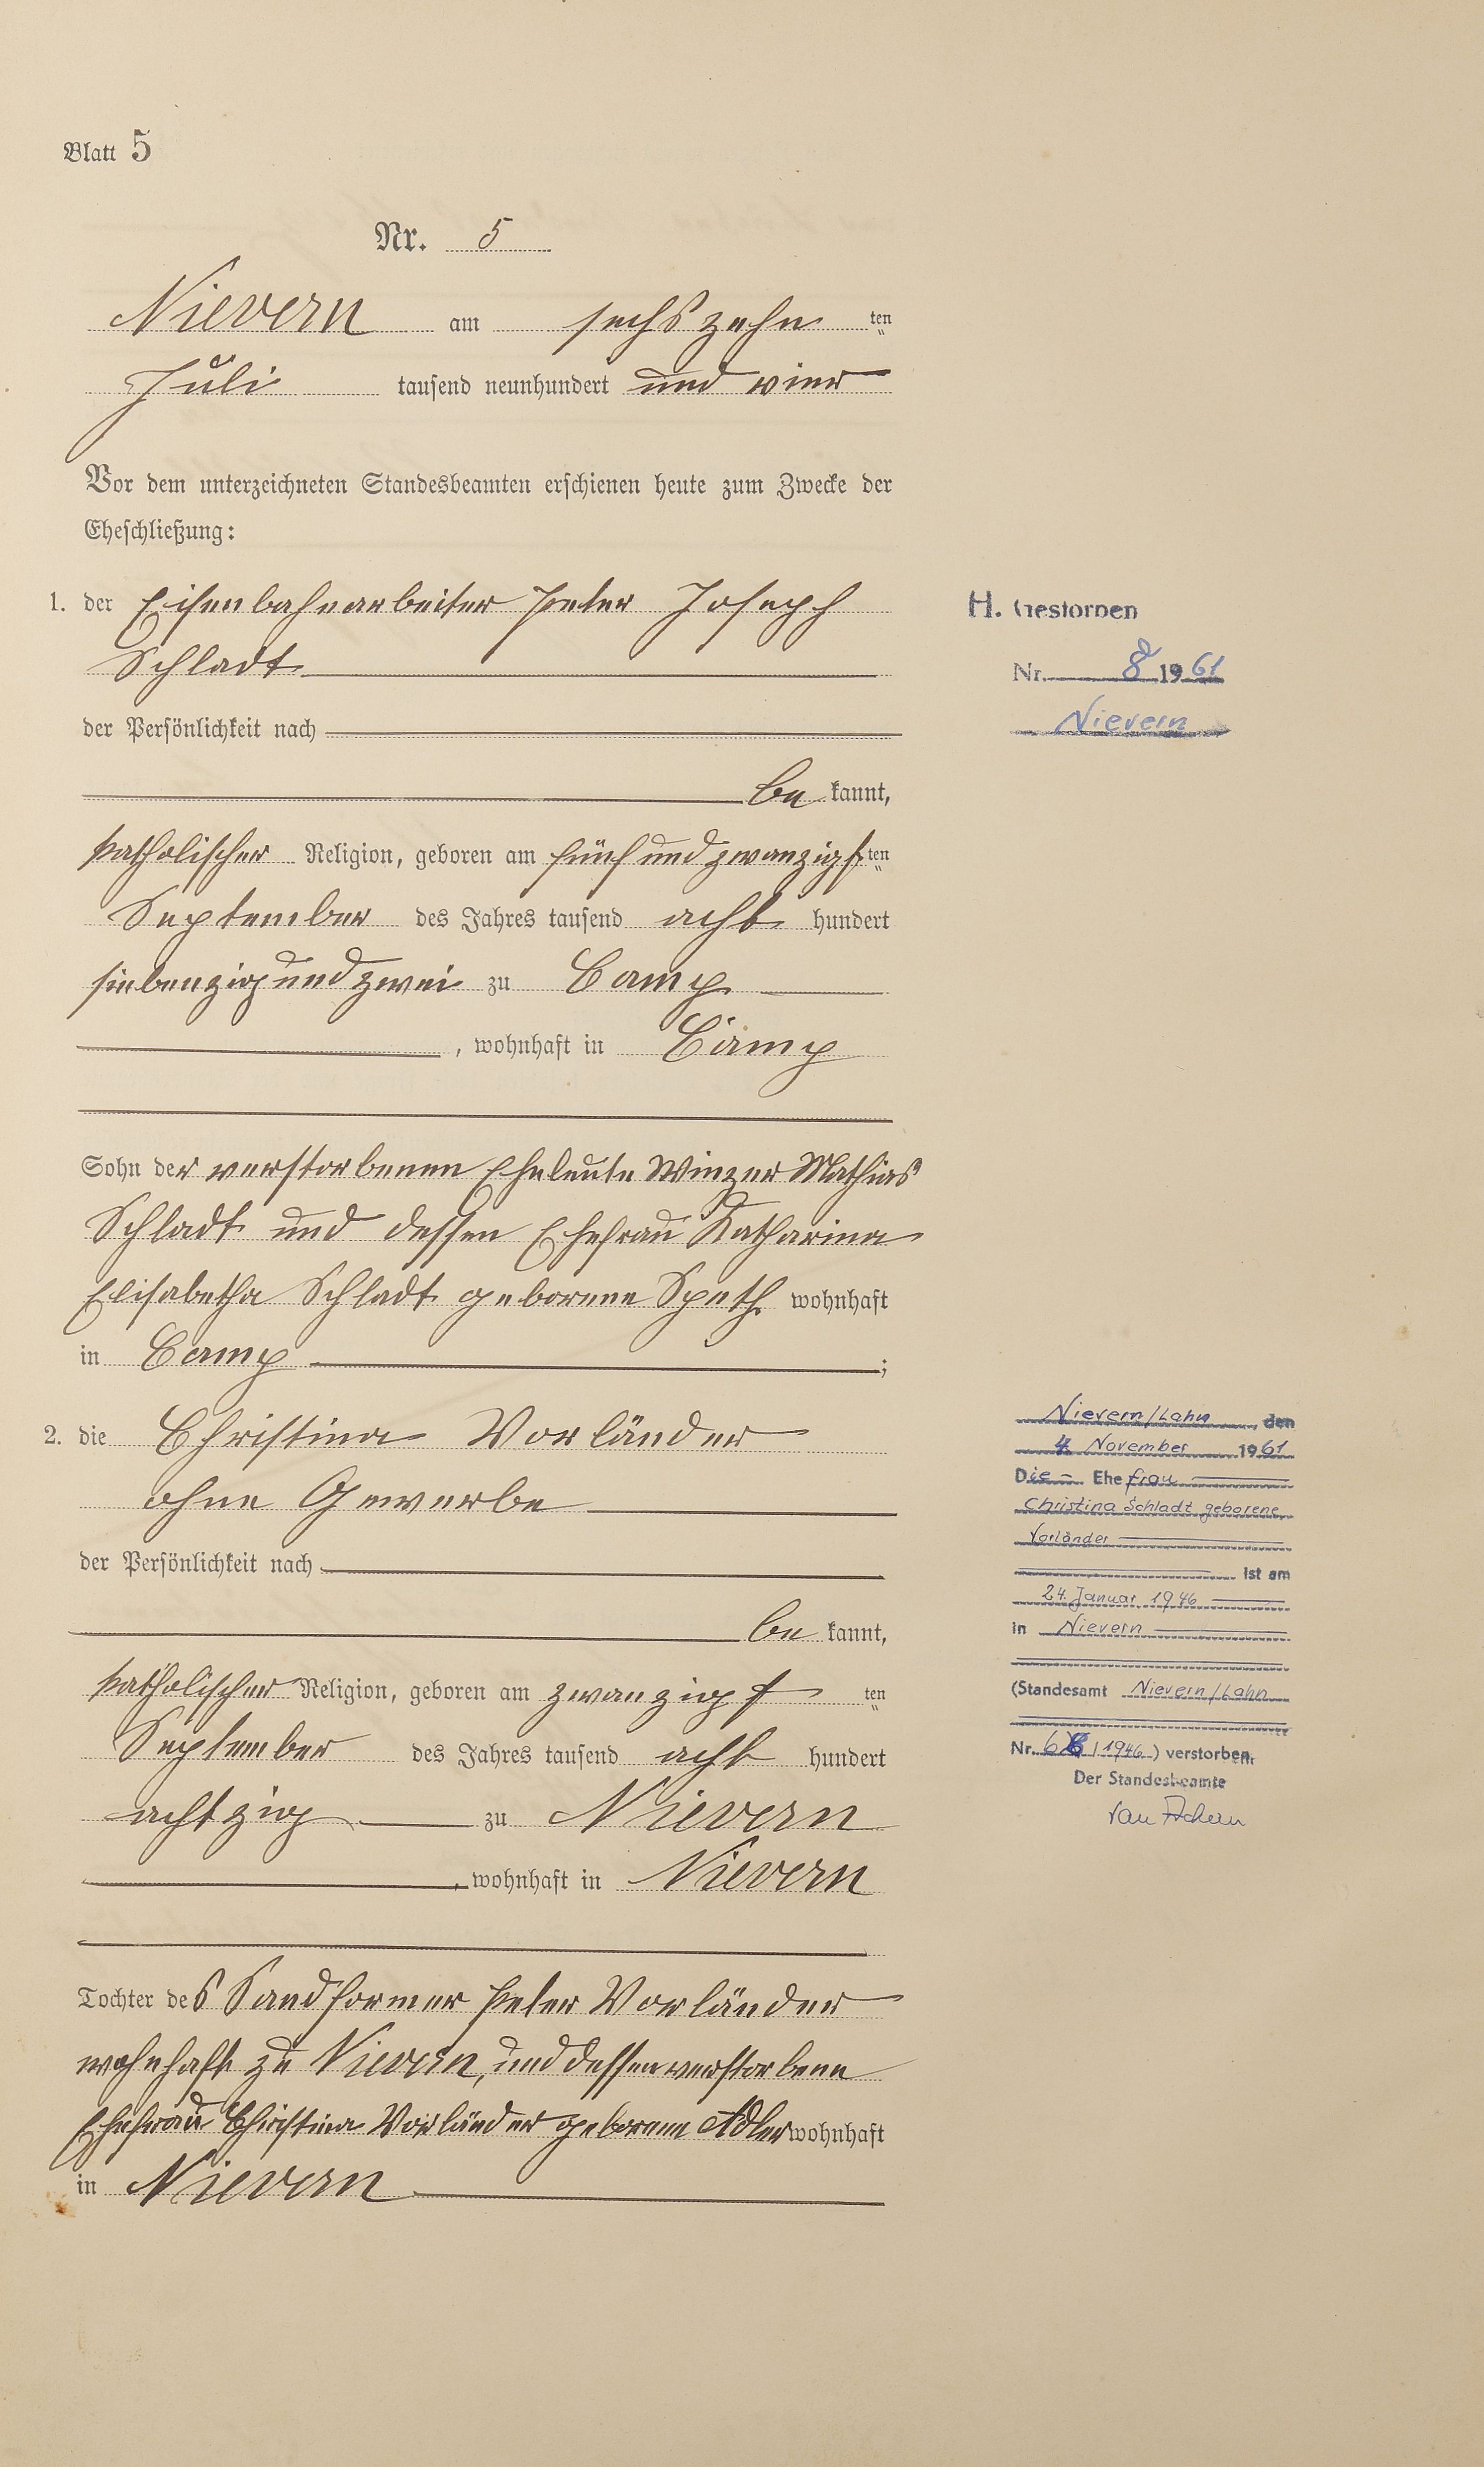 Blatt 5
Nr. 5
Nievern am sechszehn ten
Juli tausend neunhundert und vier
Vor dem unterzeichneten Standesbeamten erschienen heute zum Zwecke der
Eheschließung:
1. der Eisenbahnarbeiter Peter Joseph
Schladt
der Persönlichkeit nach
be kannt,
katholischer Religion, geboren am fünf und zwanzigsten
September des Jahres tausend acht hundert
siebenzig und zwei zu Camp
, wohnhaft in Camp
Sohn der verstorbenen Eheleute Winzer Mathias
Schladt und dessen Ehefrau Katharina
Elisabetha Schladt geborene Speth wohnhaft
in Camp ;
2. die Christina Vorländer
ohne Gewerbe
der Persönlichkeit nach
be kannt,
katholischer Religion, geboren am zwanzigst ten
September des Jahres tausend acht hundert
achtzig zu Nievern
, wohnhaft in Nievern
Tochter des Sandformer Peter Vorländer
wohnhaft zu Nievern, und dessen verstorbene
Ehefrau Christina Vorländer geborene Adler wohnhaft
in Nievern
H. Gestorben
Nr. 8 1961
Nievern
Nievern/Lahn, den
4. November 1961
Die Ehefrau
Christina Schladt geborene
Vorländer
ist am
24. Januar 1946
in Nievern
(Standesamt Nievern/Lahn
Nr. 6 / 1946) verstorben.
Der Standesbeamte